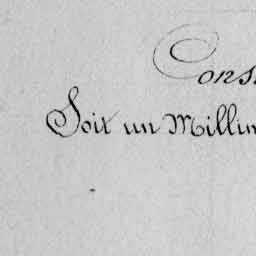 Cons
Soit un Millim